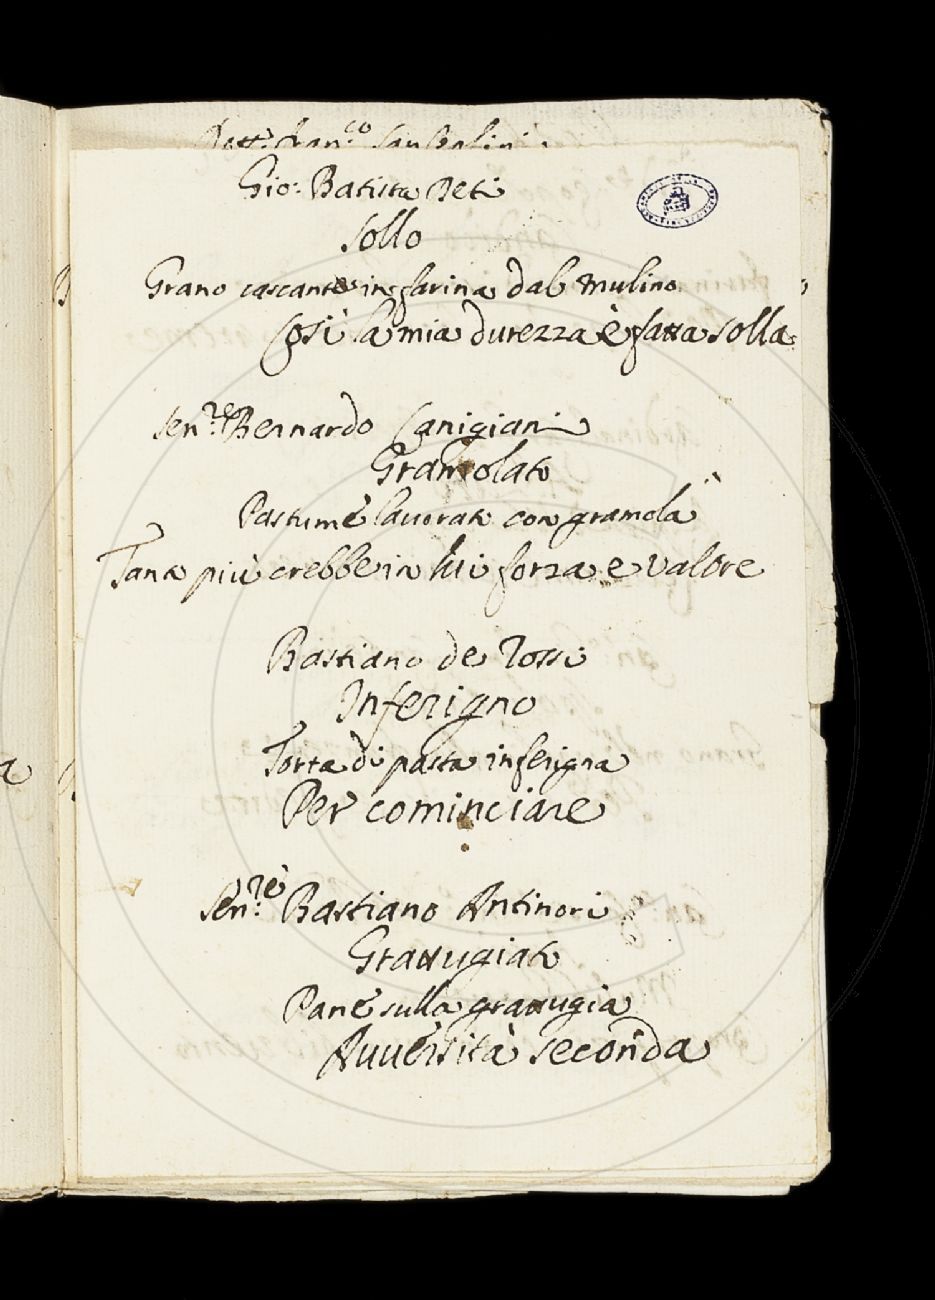 Gio: Batista Deti
Sollo
Grano cascante in farina dal mulino
Così la mia durezza è fatta solla
Sen.re Bernardo Canigiani
Gramolato
Pastume lavorato con gramola
Tanta più crebbe in lui forza e valore
Bastiano de Rossi
Inferigno
Torta di pasta inferigna
Per cominciare
Sen.re Bastiano Antinori
Grattugiato
Pane sulla grattugia
Avversità seconda